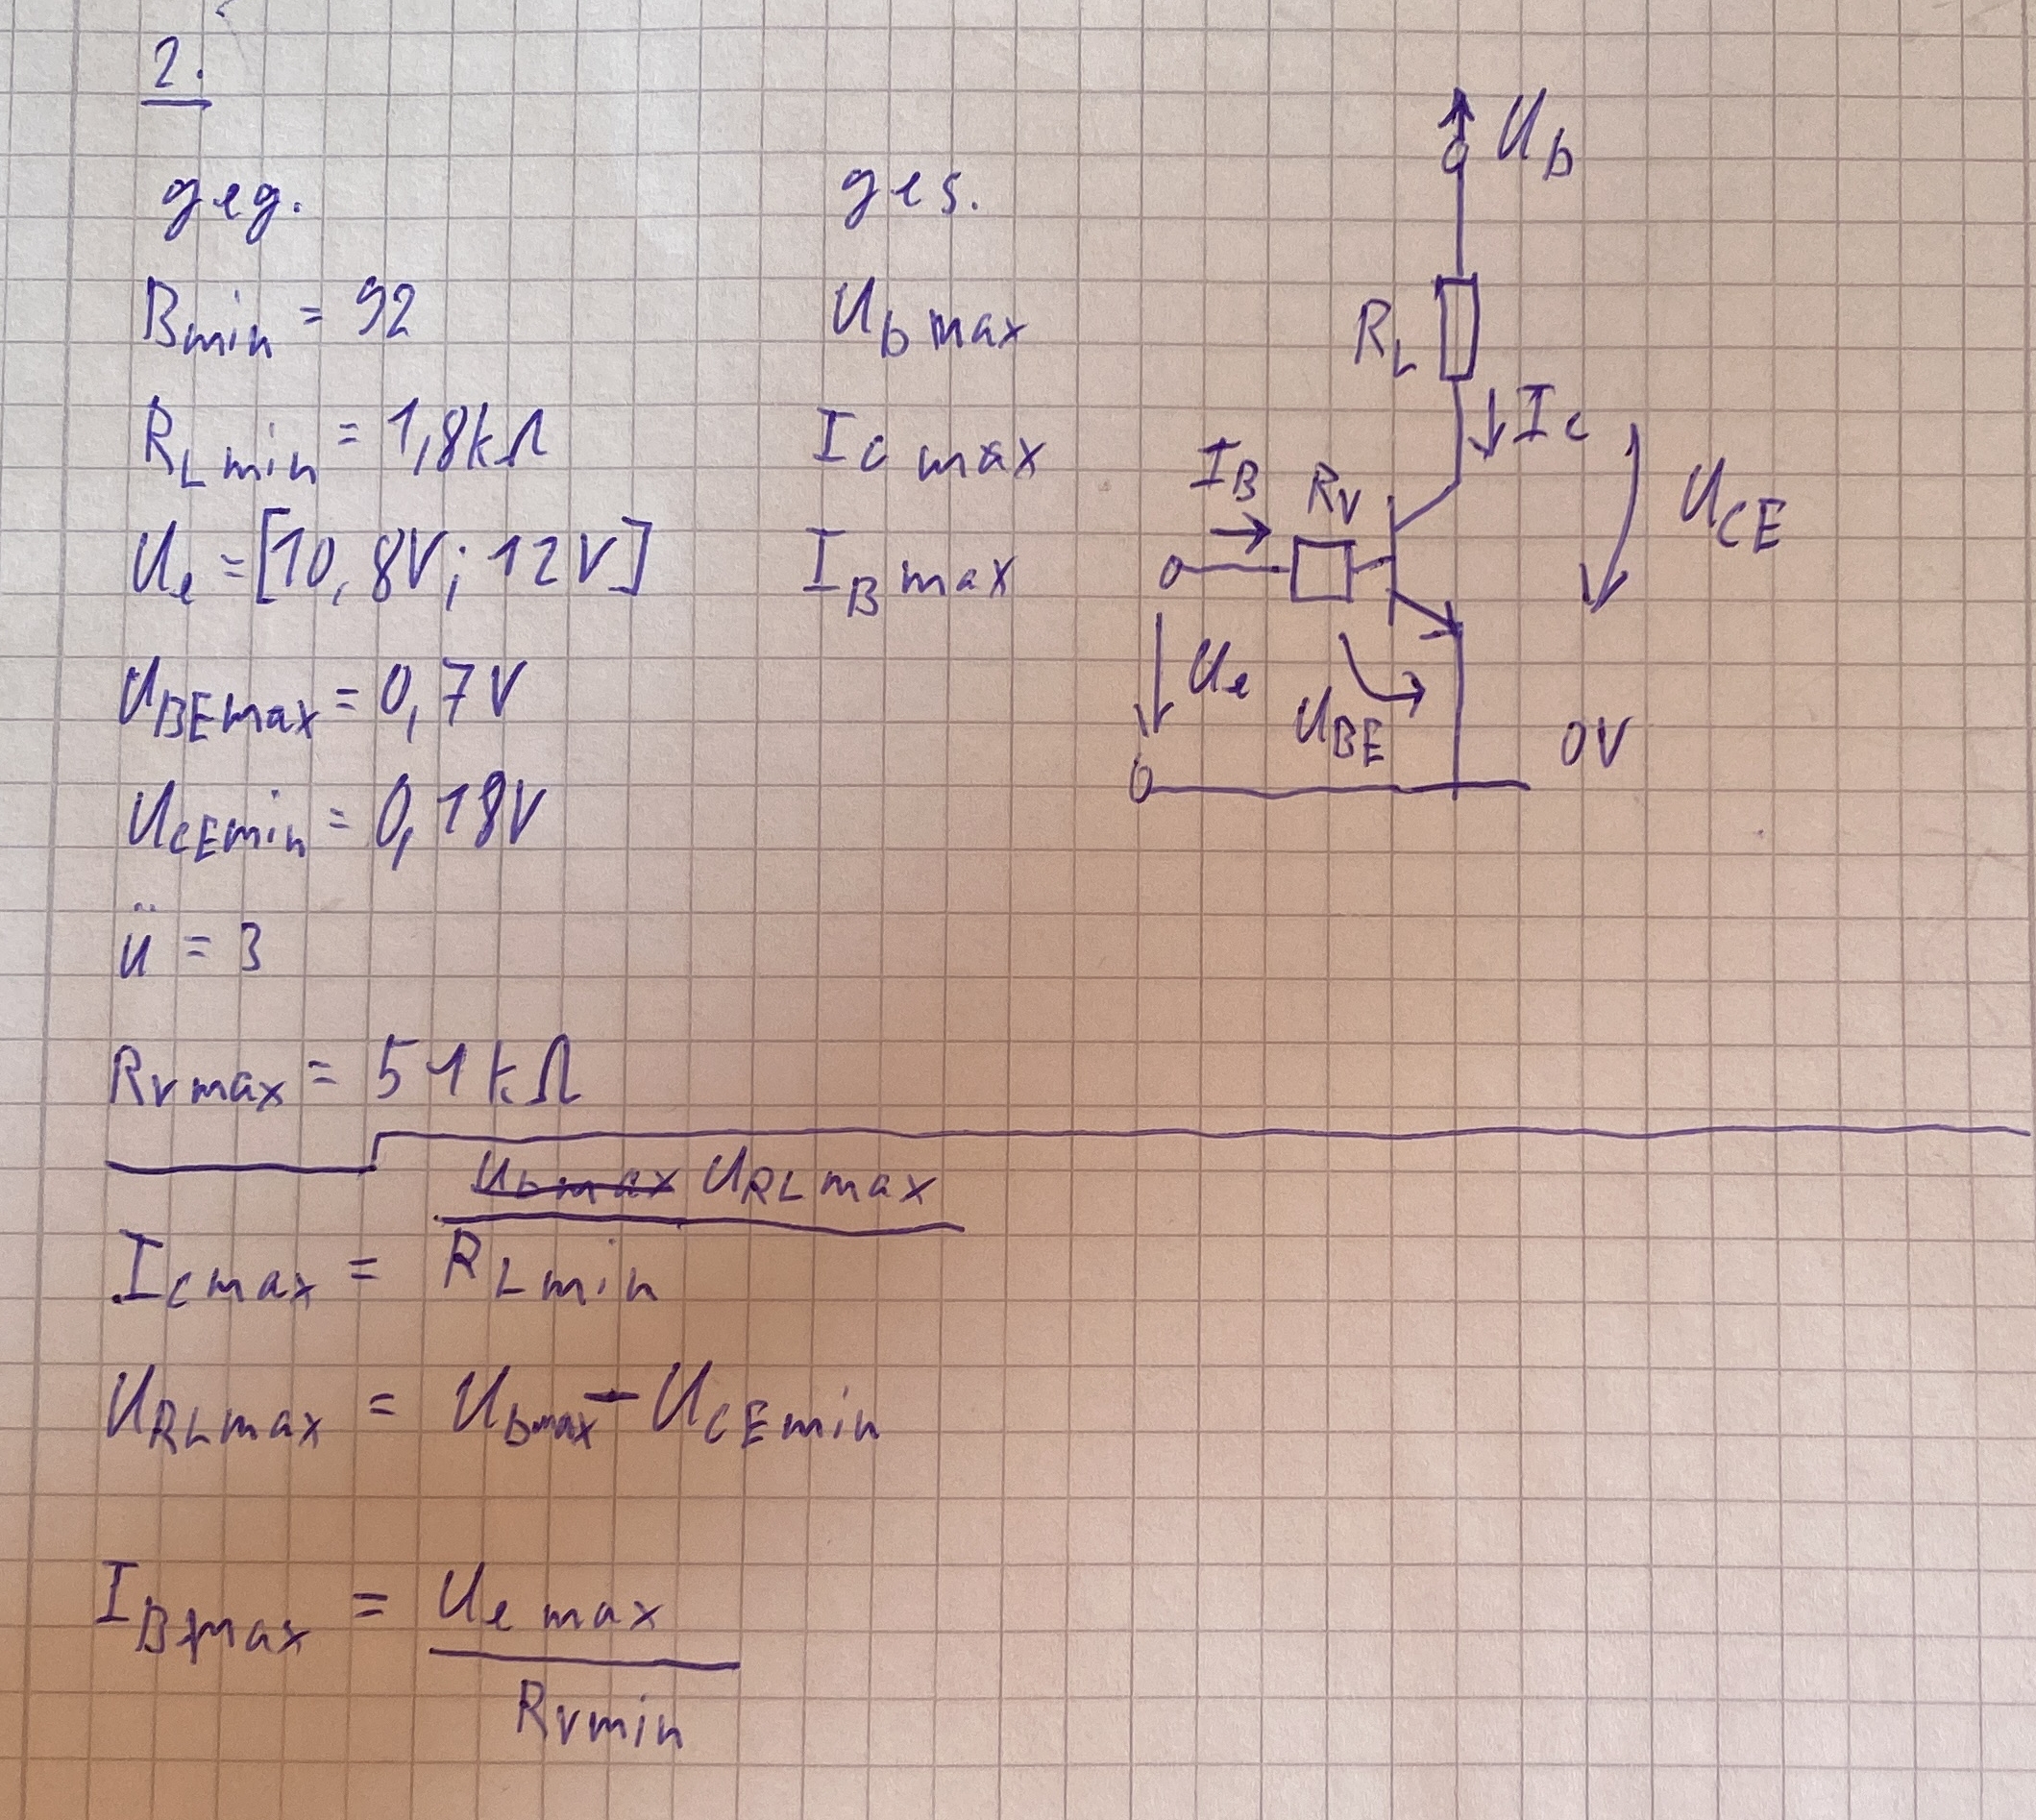 2.
geg.
B min = 92
R L min = 1,8kΩ
U e = [10,8V; 12V]
U BEmax = 0,7V
U CEmin = 0,18V
ü = 3
R vmax = 51kΩ
ges.
U b max
I C max
I B max
U b
R L
I C
I B
R V
U CE
U e
U BE
0V
U bmax U RL max
I Cmax = R L min
U RLmax = U bmax - U CEmin
I Bmax = U e max
R vmin